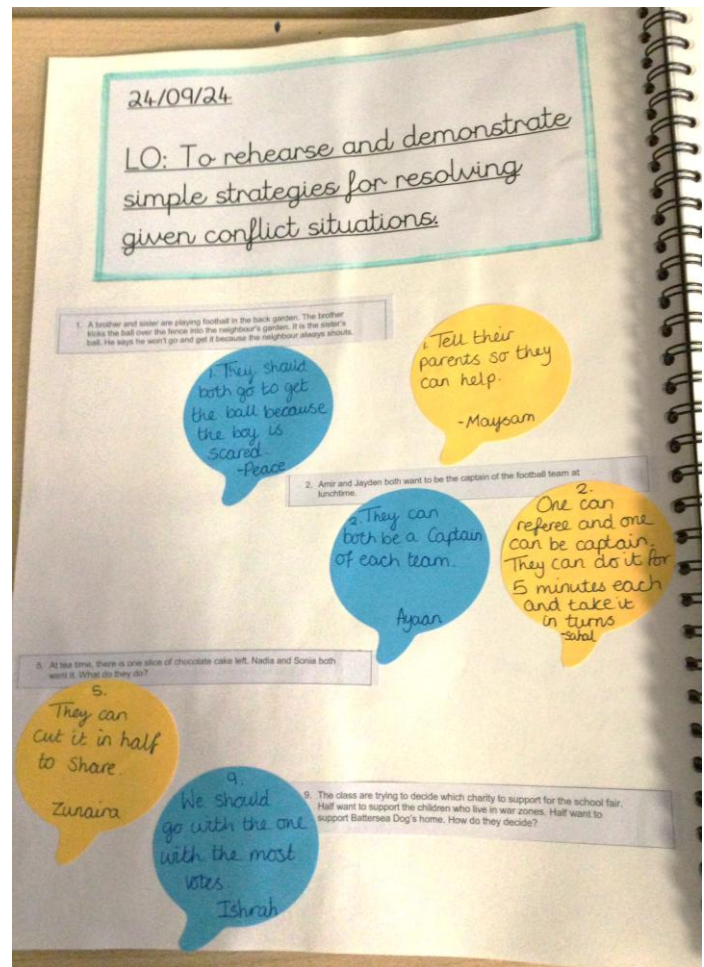 24/09/24
LO: To rehearse and demonstrate
simple strategies for resolving
given conflict situations.
1. A brother and sister are playing football in the back garden. The brother
kicks the ball over the fence into the neighbour's garden. It is the sister's
ball. He says he won't go and get it because the neighbour always shouts.
1. They should
both go to get
the ball because
the boy is
scared.
-Peace
1. Tell their
parents so they
can help.
-Maysam
2. Amir and Jayden both want to be the captain of the football team at
lunchtime.
2. They can
both be a Captain
of each team.
Ayaan
2.
One can
referee and one
can be captain.
They can do it for
5 minutes each
and take it
in turns
-Sahal
5. At tea time, there is one slice of chocolate cake left. Nadia and Sonia both
want it. What do they do?
5.
They can
cut it in half
to share.
Zunaira
9. The class are trying to decide which charity to support for the school fair.
Half want to support the children who live in war zones. Half want to
support Battersea Dog's home. How do they decide?
9.
We should
go with the one
with the most
votes.
Ishrah